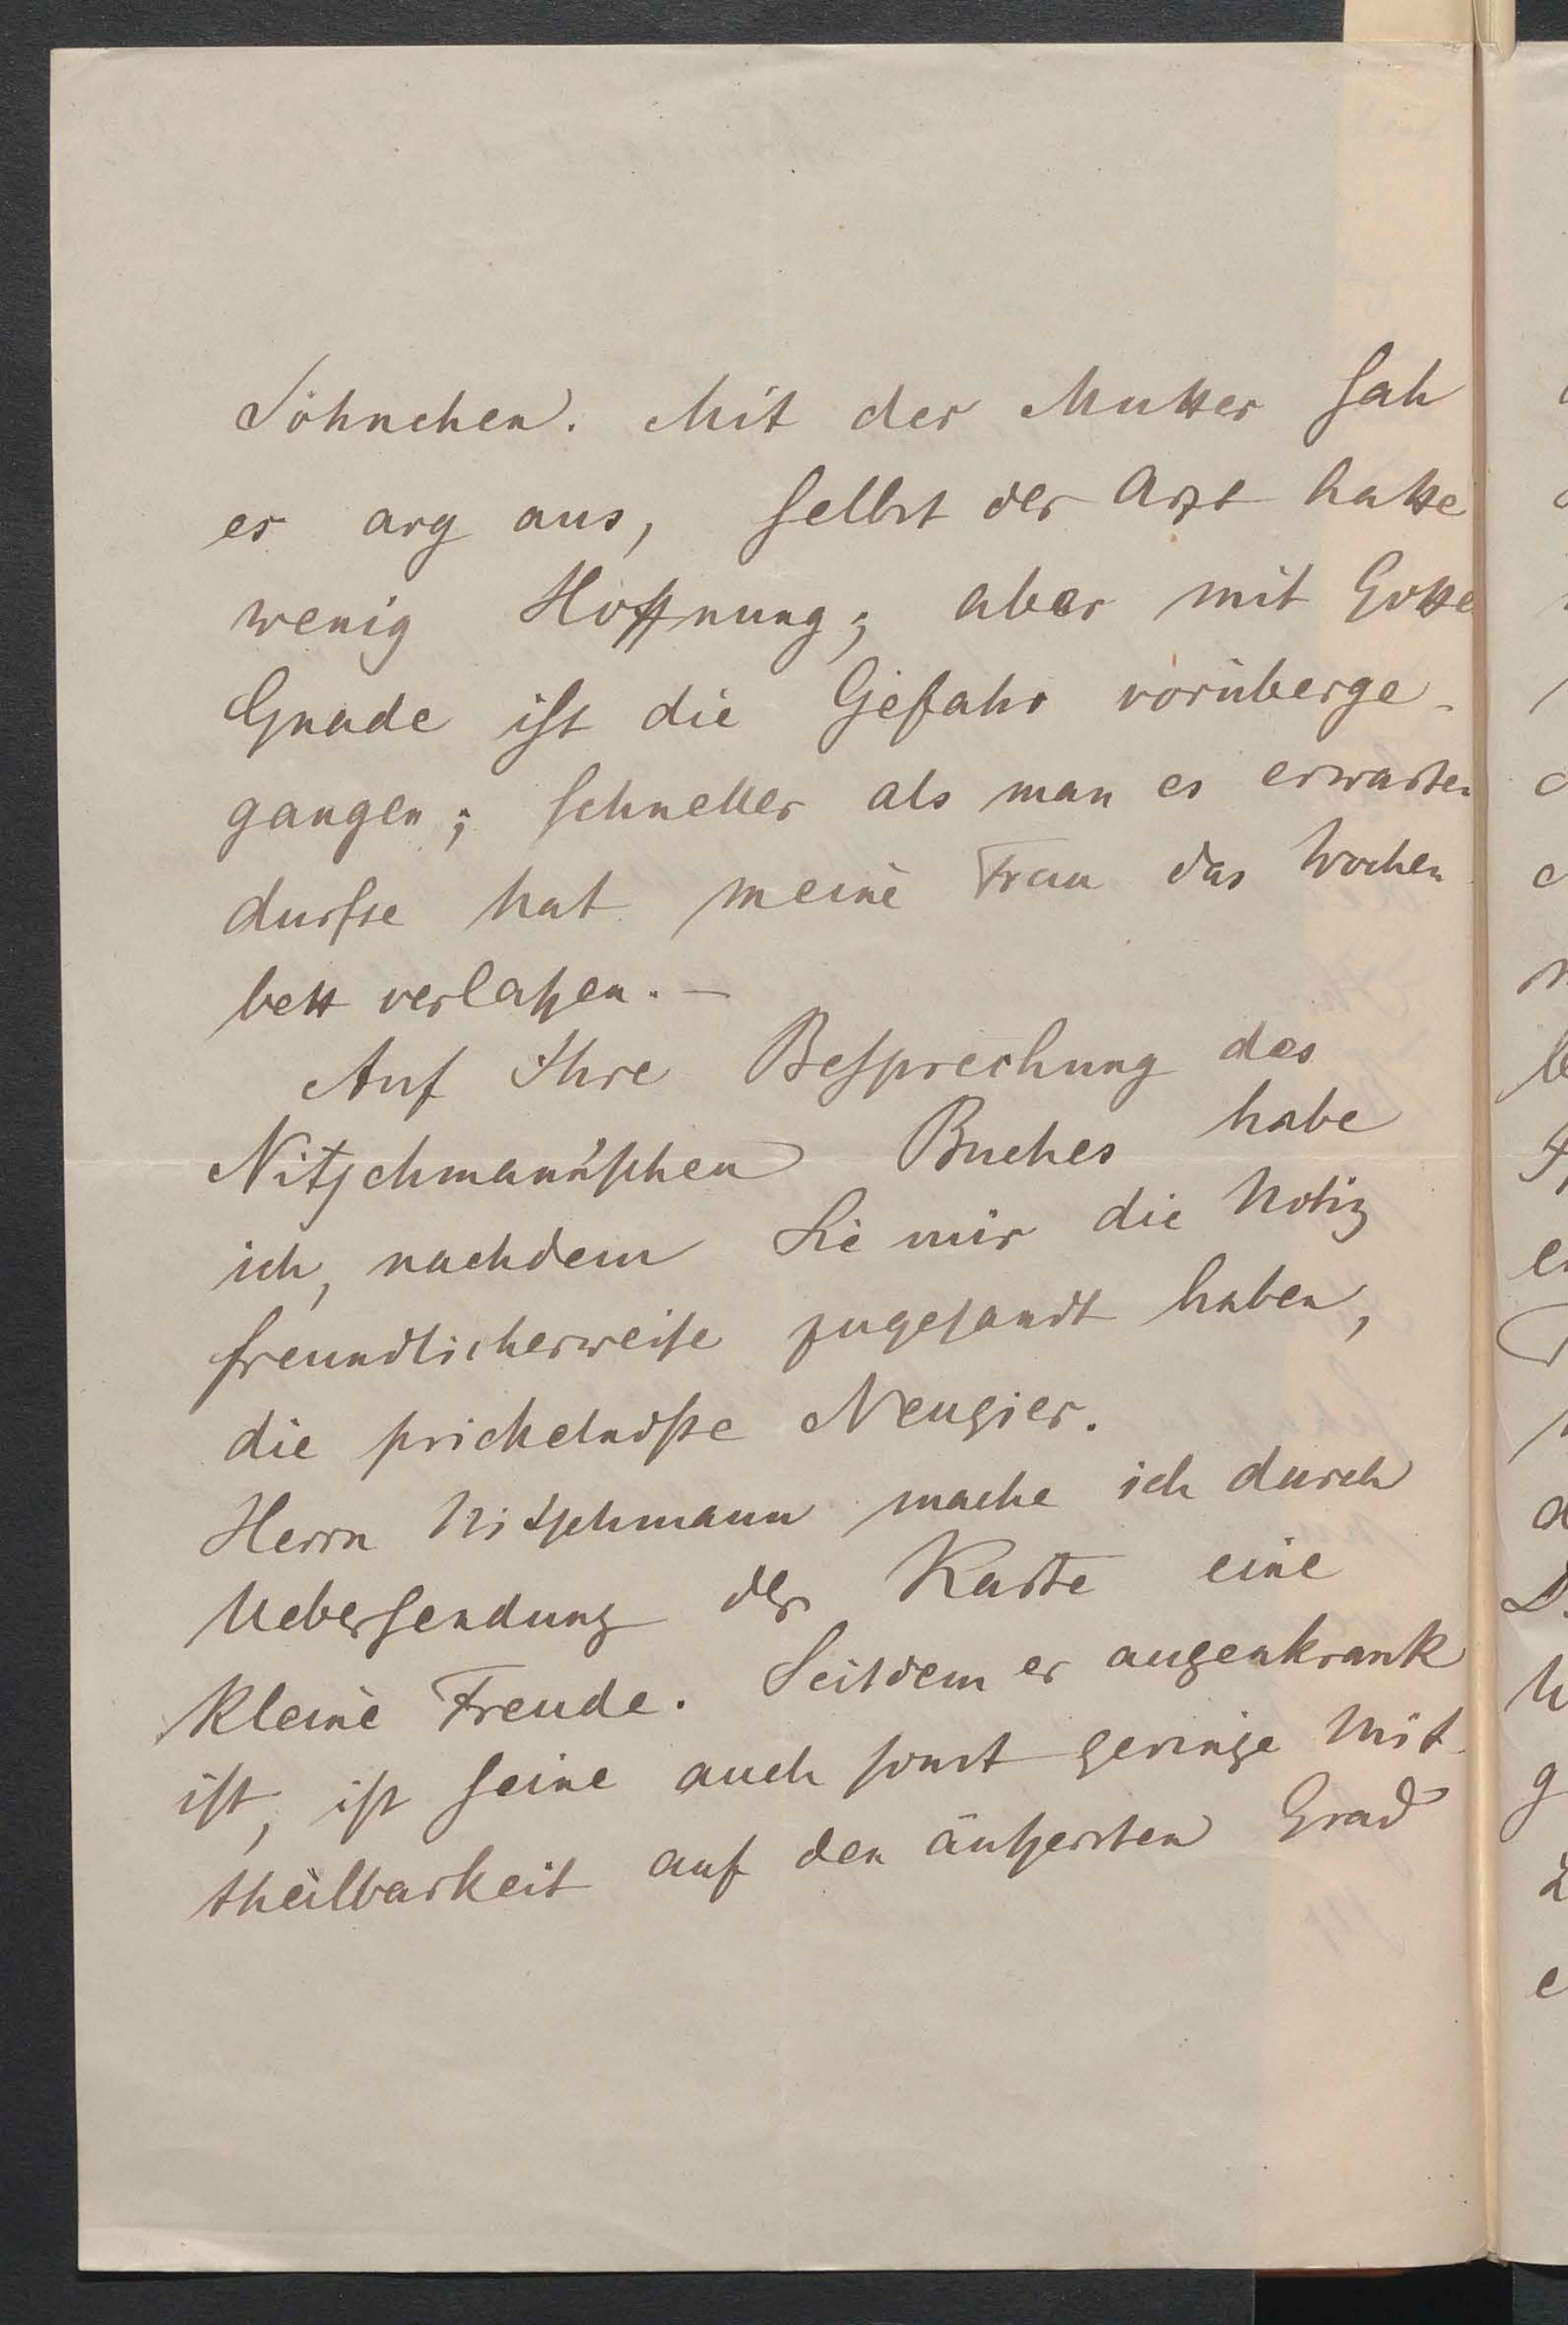 Söhnchen. Mit der Mutter sah
es arg aus, selbst der Arzt hatte
wenig Hoffnung; aber mit Gotte
Gnade ist die Gefahr vorüberge-
gangen; schneller als man es erwarten
durfte hat meine Frau das Wochen
bett verlaßen. —
Auf Ihre Besprechung des
Nitschmann'schen Buches habe
ich, nachdem Sie mir die Notiz
freundlicherweise zugesandt haben,
die prickelndste Neugier.
Herrn Nitschmann mache ich durch
Uebersendung der Karte eine
kleine Freude. Seitdem er augenkrank
ist, ist seine auch sonst geringe Mit-
theilbarkeit auf den äußersten Grad